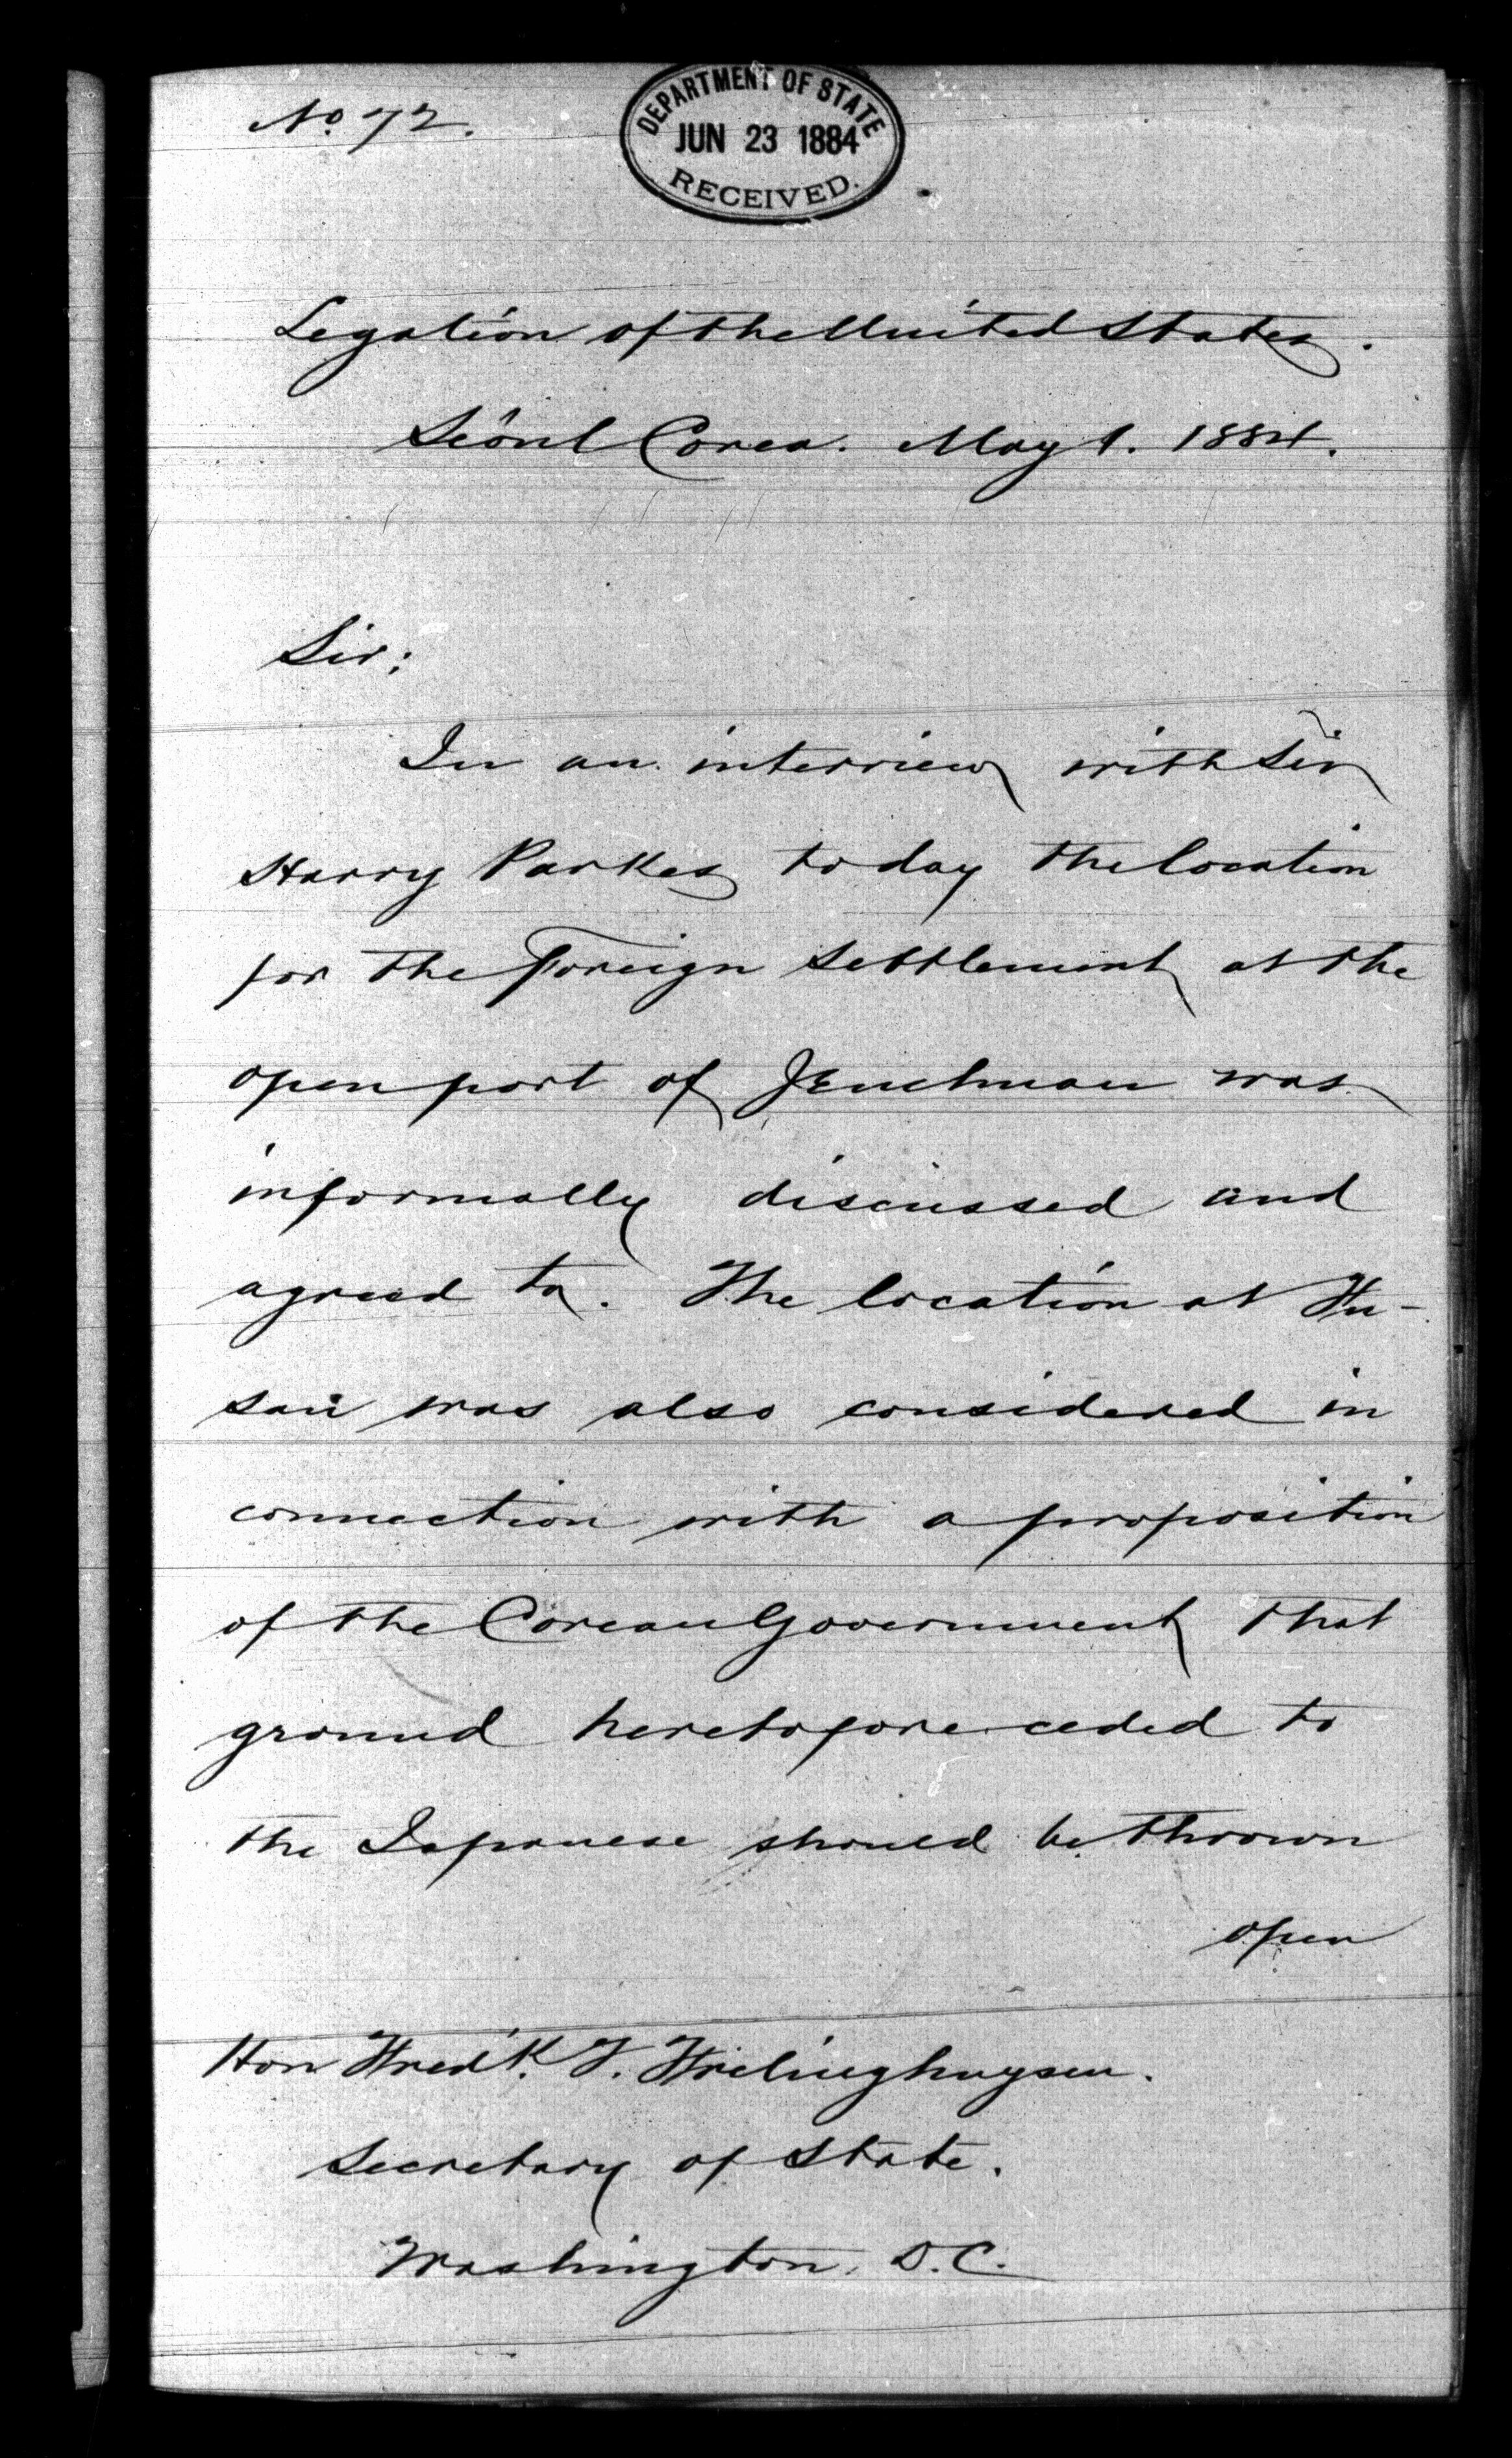 No 72.
DEPARTMENT OF STATE
JUN 23 1884
RECEIVED.
Legation of the United States.
Seôul Corea. May 1. 1884.
Sir:
In an interview with Sir
Harry Parkes today the location
for the Foreign Settlement at the
open port of Jenchuan was
informally discussed and
agreed to. The location at Fu-
san was also considered in
connection with a proposition
of the Corean Government that
ground heretofore ceded to
the Japanese should be thrown
open
Hon Fred'k. T. Frelinghuysen.
Secretary of State.
Washington, D.C.